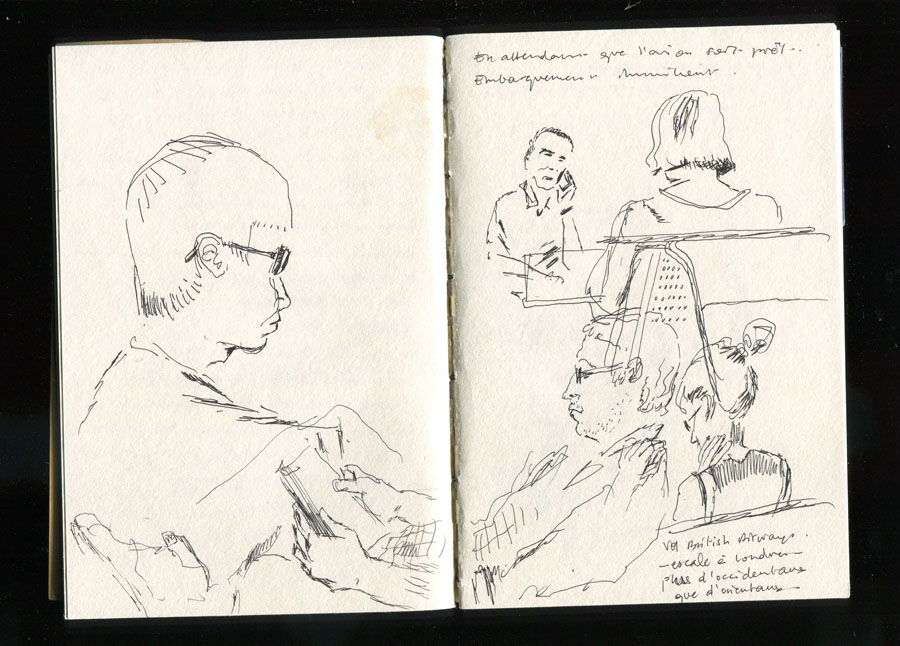 En attendant que l'avion soit prêt...
Embarquement imminent.
Vol British Airways.
escale à Londres
plus d'occidentaux
que d'orientaux